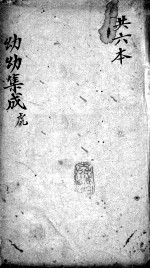 共六本
幼幼集成